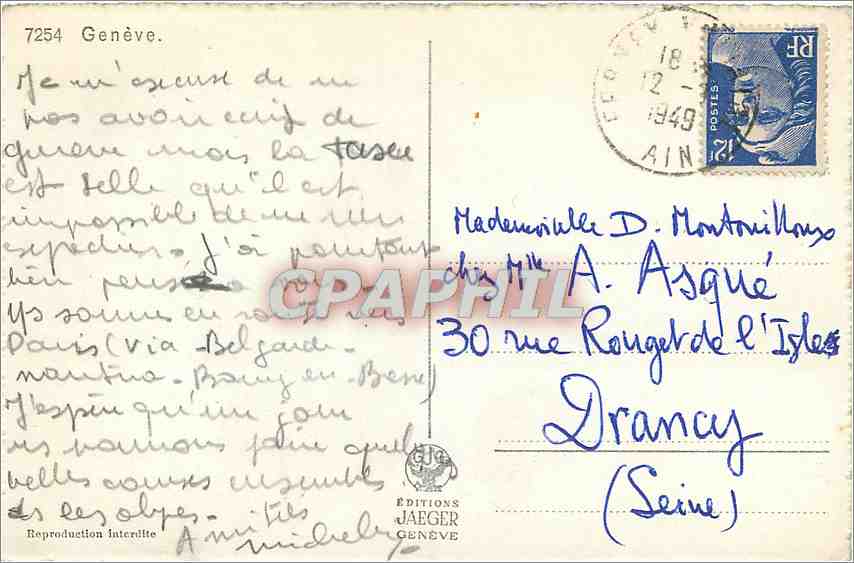 7254 Genève.
Je m'excuse de ne
pas avoir écrit de
genève mais la taxe
est telle qu'il est
impossible de ne rien
expédier. J'ai pourtant
bien pensé à vous.
Ns sommes en route vers
Paris (via Belgarde -
nantua - Bourg en Bresse)
J'espère qu'un jour
ns pourrons faire quelq
belles courses ensemble
ds les alpes. Amitiés
Reproduction interdite
ÉDITIONS
JAEGER
GENÈVE
18
12
1949
AIN
RF
POSTES
12F
Mademoiselle D. Montouilloux
chez Mlle A. Asqué
30 rue Rouget de l'Isle
Drancy
(Seine)
CPAPHIL